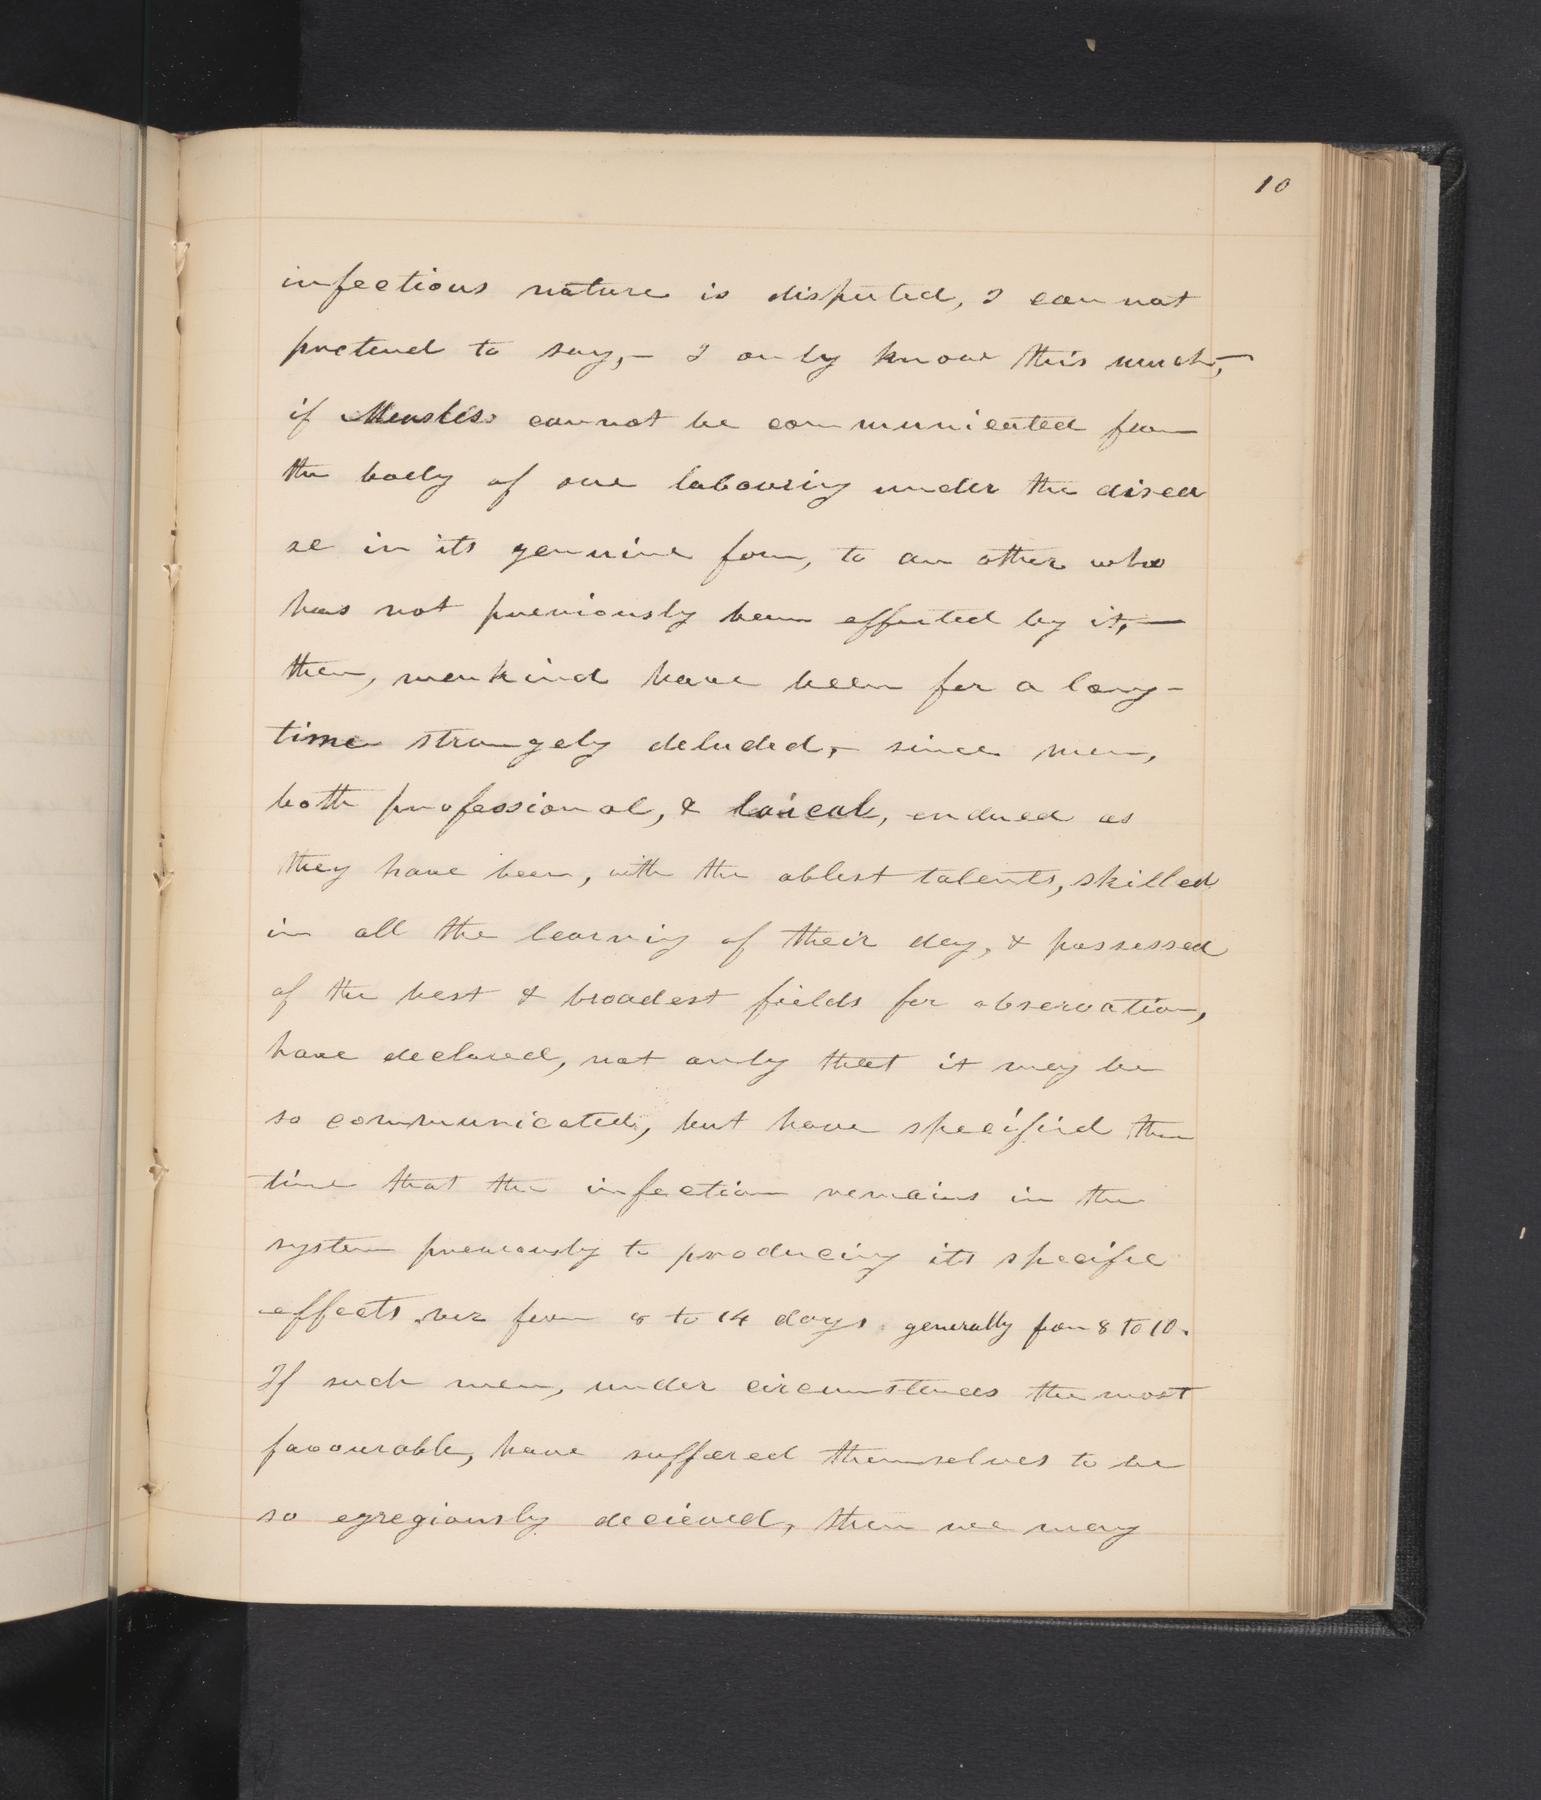 10
infectious nature is disputed, I can not
pretend to say,- I only know this much,-
if Measles cannot be communicated from
the body of one labouring under the disea
se in its genuine form, to an other who
has not previously been effected by it,-
then, mankind have been for a long-
time strangely deluded,- since men,
both professional, & laical, endued as
they have been, with the ablest talents, skilled
in all the learning of their day, & possessed
of the best & broadest fields for observation,
have declared, not only that it may be
so communicated, but have specified the
time that the infection remains in the
system previously to producing its specific
effects from 8 to 14 days. generally from 8 to 10.
If such men, under circumstances the most
favourable, have suffered themselves to be
so egregiously decieved, then we may